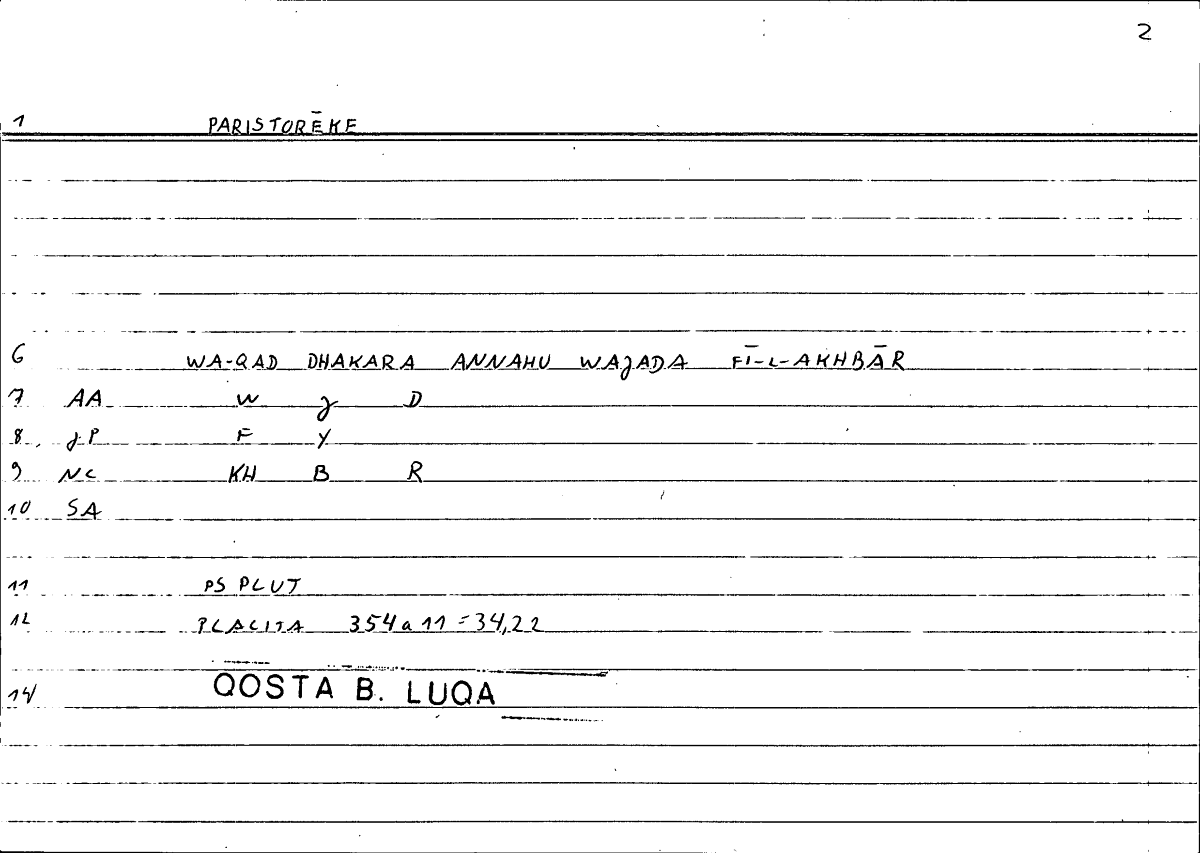 2
1 PARISTORĒKE
6 WA-QAD DHAKARA ANNAHU WAJADA FĪ-L-AKHBĀR
7 AA W J D
8 JP F Y
9 NC KH B R
10 SA
11 PS PLUT
12 PLACITA 354a 11 = 34,22
14 QOSTA B. LUQA